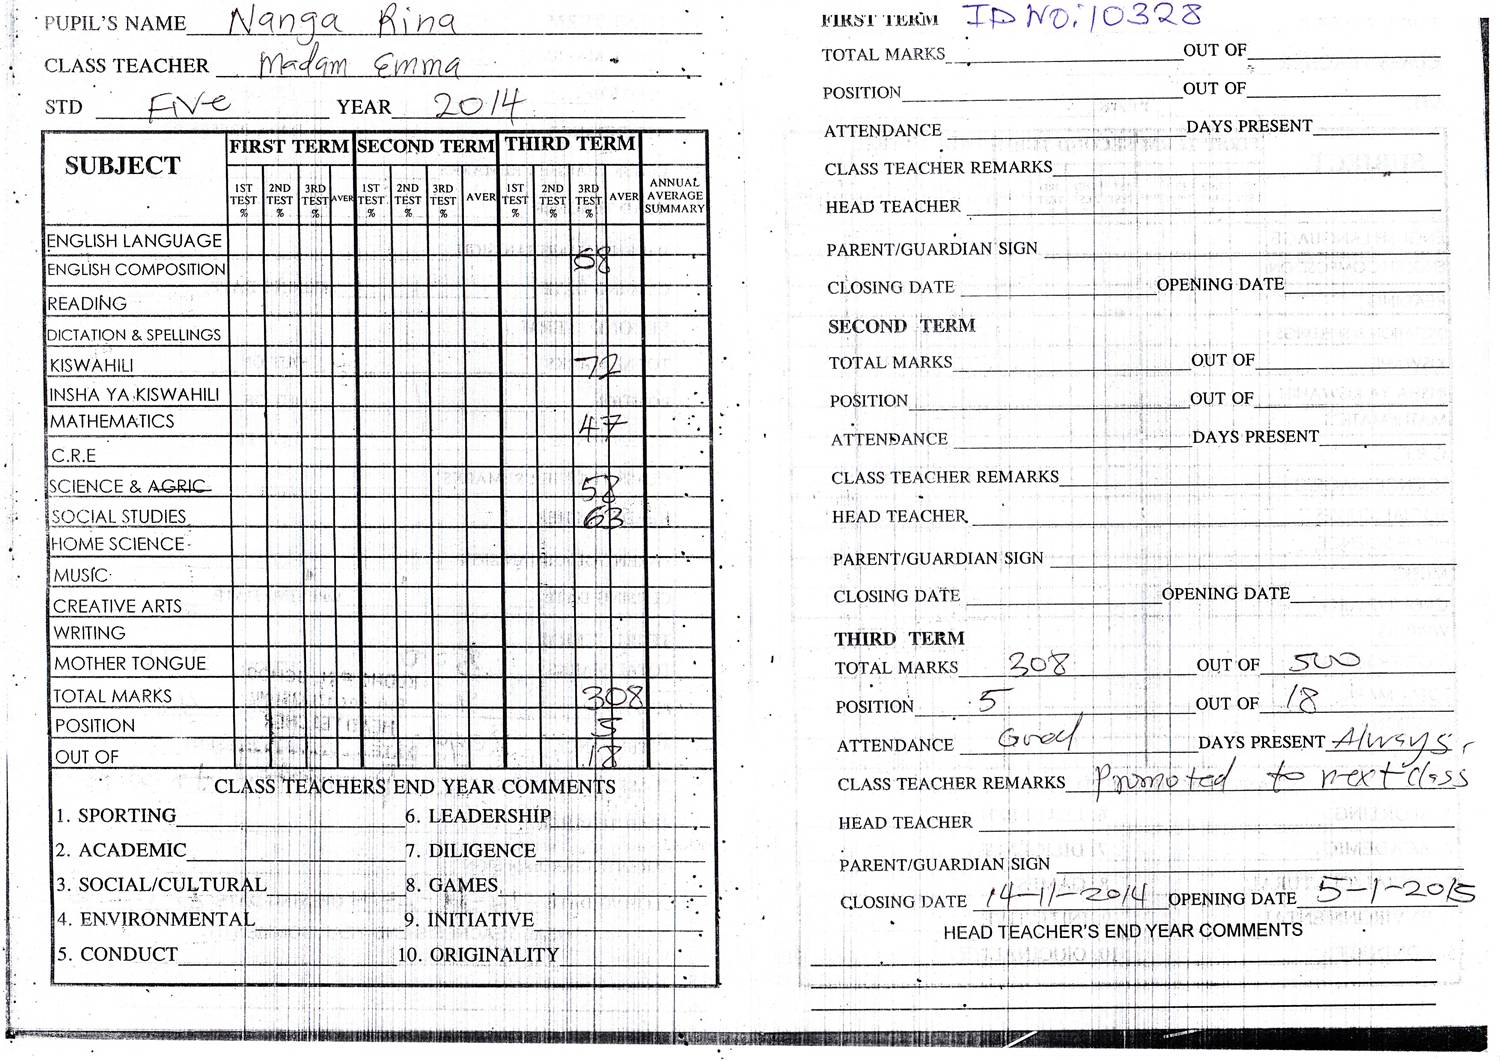 PUPIL'S NAME Nanga Rina
CLASS TEACHER Madam Emma
STD Five YEAR 2014
SUBJECT FIRST TERM SECOND TERM THIRD TERM
1ST TEST % 2ND TEST % 3RD TEST % AVER 1ST TEST % 2ND TEST % 3RD TEST % AVER 1ST TEST % 2ND TEST % 3RD TEST % AVER ANNUAL AVERAGE SUMMARY
ENGLISH LANGUAGE
68
ENGLISH COMPOSITION
READING
DICTATION & SPELLINGS
KISWAHILI 72
INSHA YA KISWAHILI
MATHEMATICS 47
C.R.E
SCIENCE & AGRIC 58
SOCIAL STUDIES 63
HOME SCIENCE
MUSIC
CREATIVE ARTS
WRITING
MOTHER TONGUE
TOTAL MARKS 308
POSITION 5
OUT OF 18
CLASS TEACHERS END YEAR COMMENTS
1. SPORTING 6. LEADERSHIP
2. ACADEMIC 7. DILIGENCE
3. SOCIAL/CULTURAL 8. GAMES
4. ENVIRONMENTAL 9. INITIATIVE
5. CONDUCT 10. ORIGINALITY
FIRST TERM ID NO: 10328
TOTAL MARKS OUT OF
POSITION OUT OF
ATTENDANCE DAYS PRESENT
CLASS TEACHER REMARKS
HEAD TEACHER
PARENT/GUARDIAN SIGN
CLOSING DATE OPENING DATE
SECOND TERM
TOTAL MARKS OUT OF
POSITION OUT OF
ATTENDANCE DAYS PRESENT
CLASS TEACHER REMARKS
HEAD TEACHER
PARENT/GUARDIAN SIGN
CLOSING DATE OPENING DATE
THIRD TERM
TOTAL MARKS 308 OUT OF 500
POSITION 5 OUT OF 18
ATTENDANCE Good DAYS PRESENT Always
CLASS TEACHER REMARKS Promoted to next class
HEAD TEACHER
PARENT/GUARDIAN SIGN
CLOSING DATE 14-11-2014 OPENING DATE 5-1-2015
HEAD TEACHER'S END YEAR COMMENTS